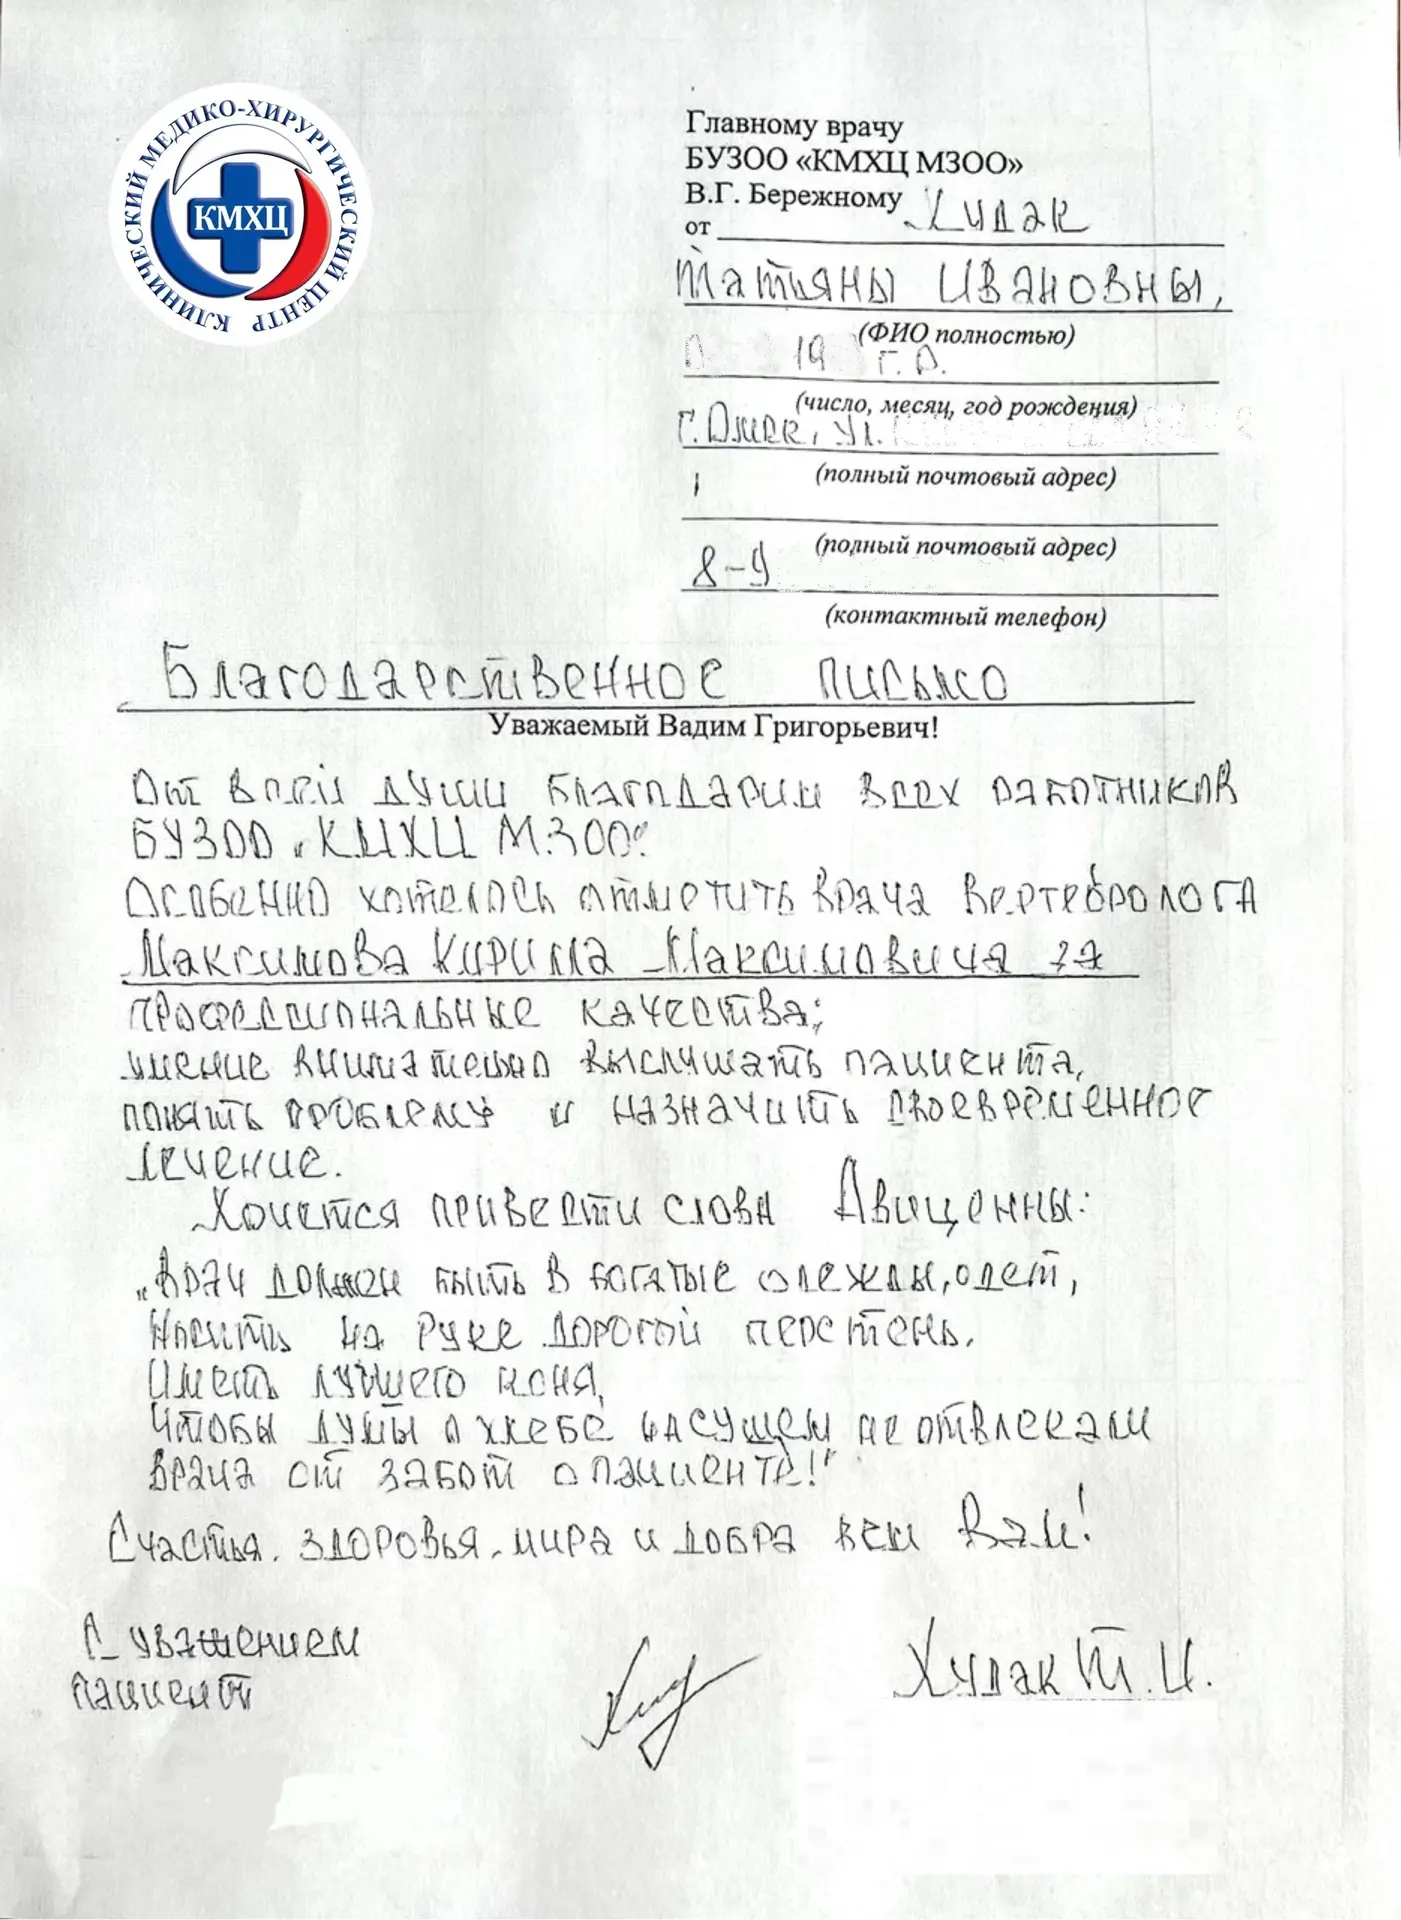 КЛИНИЧЕСКИЙ МЕДИКО-ХИРУРГИЧЕСКИЙ ЦЕНТР
КМХЦ
Главному врачу
БУЗОО «КМХЦ МЗОО»
В.Г. Бережному
от Худак
Татьяны Ивановны,
(ФИО полностью)
19 г.р.
(число, месяц, год рождения)
г. Омск, ул.
(полный почтовый адрес)
(полный почтовый адрес)
8-9
(контактный телефон)
Благодарственное письмо
Уважаемый Вадим Григорьевич!
От всей души благодарим всех работников
БУЗОО „КМХЦ МЗОО“
Особенно хотелось отметить врача вертебролога
Максимова Кирилла Максимовича за
профессиональные качества;
умение внимательно выслушать пациента,
понять проблему и назначить своевременное
лечение.
Хочется привести слова Авиценны:
„Врач должен быть в богатые одежды, одет,
Носить на руке дорогой перстень,
Иметь лучшего коня,
Чтобы думы о хлебе насущем не отвлекали
врача от забот о пациенте!"
Счастья, здоровья, мира и добра всем Вам!
С уважением
пациент
Худак Т.И.